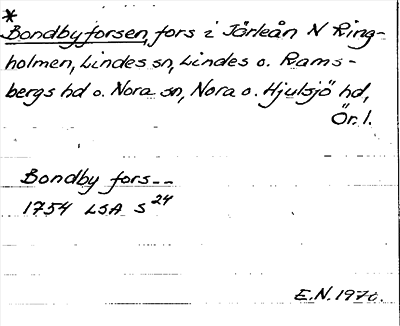 *
Bondbyforsen, fors i Järleån N Ring-
holmen, Lindes sn, Lindes o. Rams-
bergs hd o. Nora sn, Nora o. Hjulsjö hd,
Ör. l.
Bondby fors--
1754 LSA S 24
E.N. 1970.